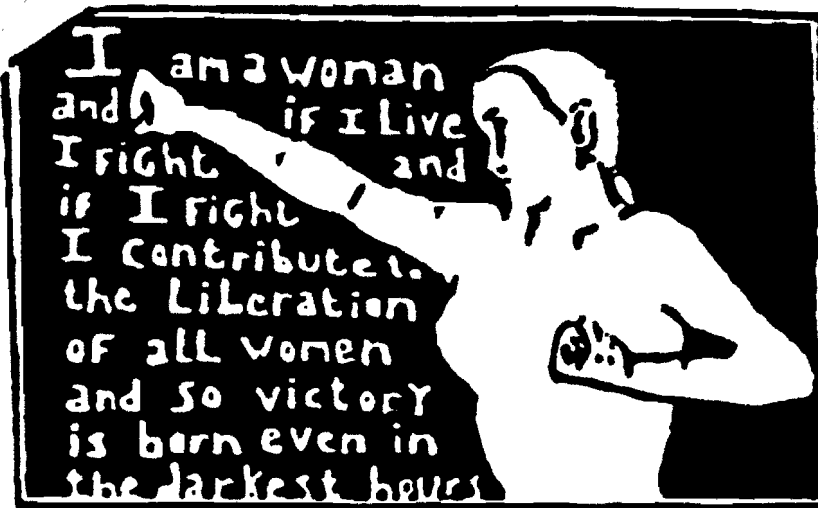 I am a woman
and if I Live
I fight and
if I fight
I contribute to
the Liberation
of all women
and so victory
is born even in
the darkest hours